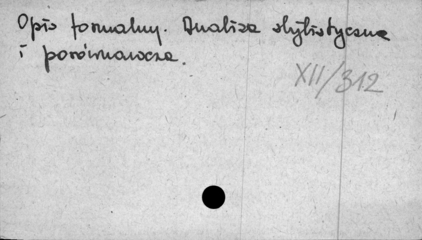 Opis formalny. Analiza stylistyczna
i porównawcza.
XII/312